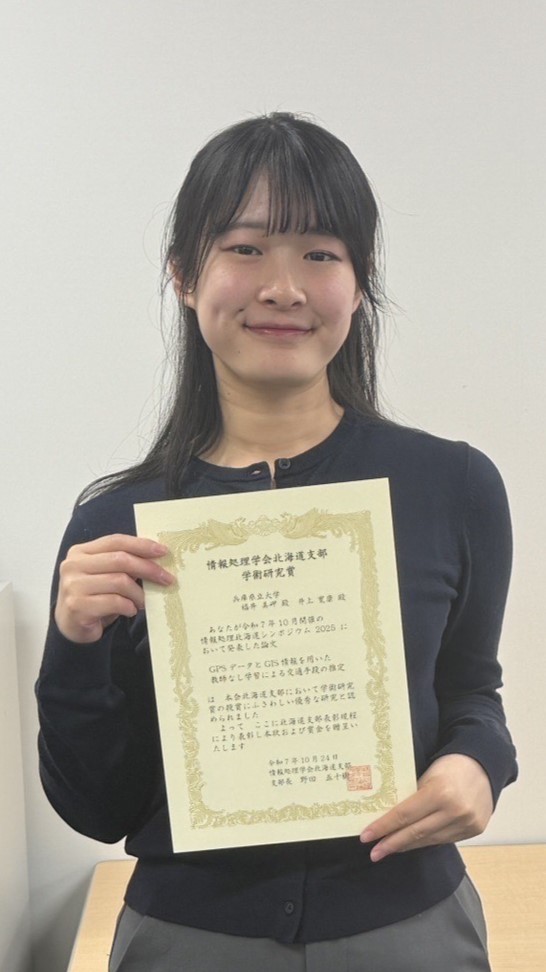 情報処理学会北海道支部
学術研究賞
兵庫県立大学
福井 美岬 殿 井上 寛康 殿
あなたが令和7年10月開催の
情報処理北海道シンポジウム 2025 に
おいて発表した論文
GPSデータとGIS情報を用いた
教師なし学習による交通手段の推定
は 本会北海道支部において学術研究
賞の授賞にふさわしい優秀な研究と認
められました
よって ここに北海道支部表彰規程
により表彰し本状および賞金を贈呈い
たします
令和7年10月24日
情報処理学会北海道支部
支部長 野田 五十樹